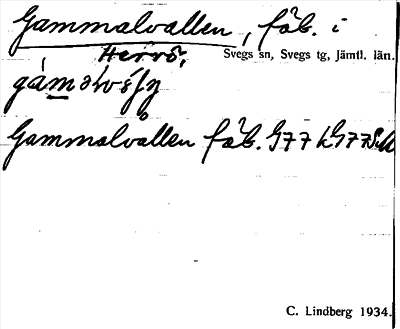 Gammalvallen, fäb. i
Herrö, Svegs sn, Svegs tg, Jämtl. län.
Gammalvallen fäb. G77 LG77
C. Lindberg 1934.